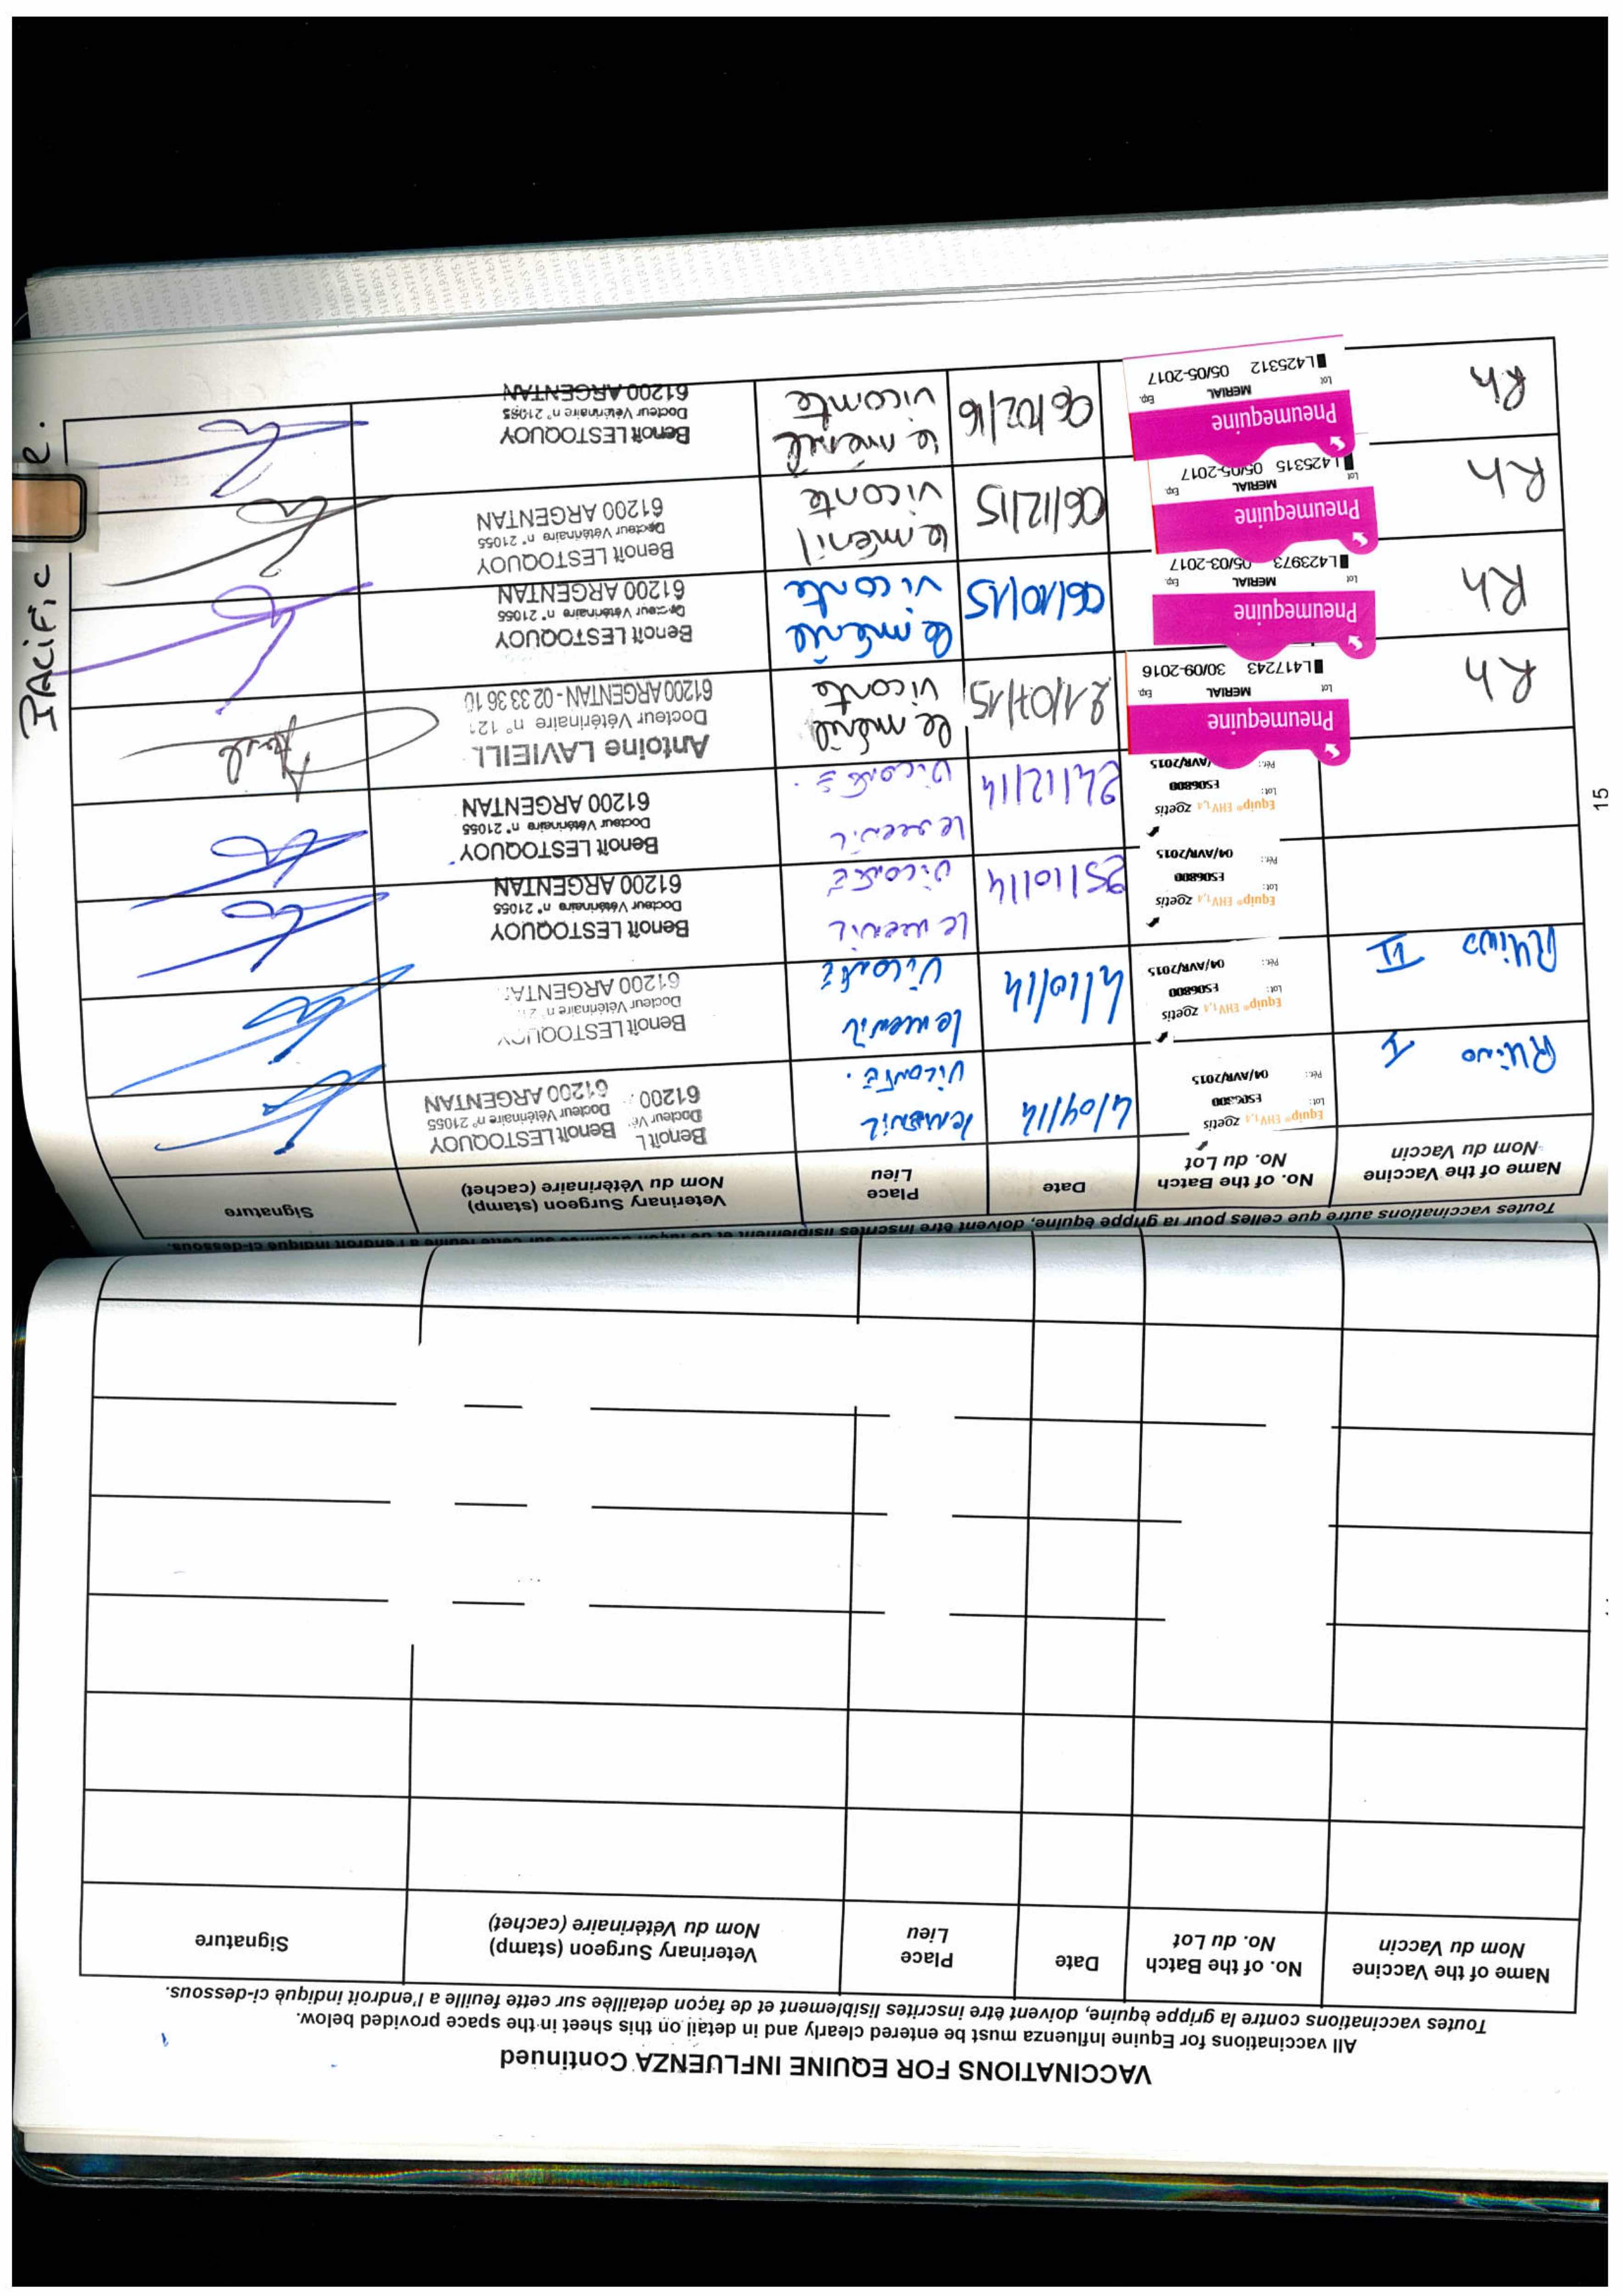 VACCINATIONS FOR EQUINE INFLUENZA Continued
All vaccinations for Equine Influenza must be entered clearly and in detail on this sheet in the space provided below.
Toutes vaccinations contre la grippe équine, doivent être inscrites lisiblement et de façon detaillée sur cette feuille a l'endroit indiqué ci-dessous.
Name of the Vaccine
Nom du Vaccin
No. of the Batch
No. du Lot
Date
Place
Lieu
Veterinary Surgeon (stamp)
Nom du Vétérinaire (cachet)
Signature
Toutes vaccinations autre que celles pour la grippe équine, doivent être inscrites lisiblement et de façon sur cette feuille a l'endroit indiqué ci-dessous.
Name of the Vaccine
Nom du Vaccin
No. of the Batch
No. du Lot
Date
Place
Lieu
Veterinary Surgeon (stamp)
Nom du Vétérinaire (cachet)
Signature
Rhino I
Equip® EHV1,4 zoetis
Lot:
Pér.: 04/AVR/2015
4/09/14
le menil
Viconte.
Benoît L Benoît LESTOQUOY
Docteur Vé Docteur Vétérinaire n° 21055
61200 61200 ARGENTAN
Rhino II
Equip® EHV1,4 zoetis
Lot: ES06800
Pér.: 04/AVR/2015
4/10/14
le menil
Viconte
Benoît LESTOQUOY
Docteur Vétérinaire n° 21
61200 ARGENTAN
Equip® EHV1,4 zoetis
Lot: ES06800
Pér.: 04/AVR/2015
25/10/14
le menil
Viconte
Benoît LESTOQUOY
Docteur Vétérinaire n° 21055
61200 ARGENTAN
Equip® EHV1,4 zoetis
Lot: ES06800
Pér.: /AVR/2015
24/12/14
le menil
Viconte.
Benoît LESTOQUOY
Docteur Vétérinaire n° 21055
61200 ARGENTAN
Rh
Pneumequine
Lot MERIAL Exp.
L417243 30/09-2016
21/07/15
le ménil
viconte
Antoine LAVIEILL
Docteur Vétérinaire n° 121
61200 ARGENTAN - 02 33 36 10
Rh
Pneumequine
Lot MERIAL Exp.
L423973 05/03-2017
06/10/15
le ménil
viconte
Benoît LESTOQUOY
Docteur Vétérinaire n° 21055
61200 ARGENTAN
Rh
Pneumequine
Lot MERIAL Exp.
L425315 05/05-2017
06/12/15
le ménil
viconte
Benoît LESTOQUOY
Docteur Vétérinaire n° 21055
61200 ARGENTAN
Rh
Pneumequine
Lot MERIAL Exp.
L425312 05/05-2017
06/02/16
le ménil
vicomte
Benoît LESTOQUOY
Docteur Vétérinaire n° 21055
61200 ARGENTAN
15
PAciFic